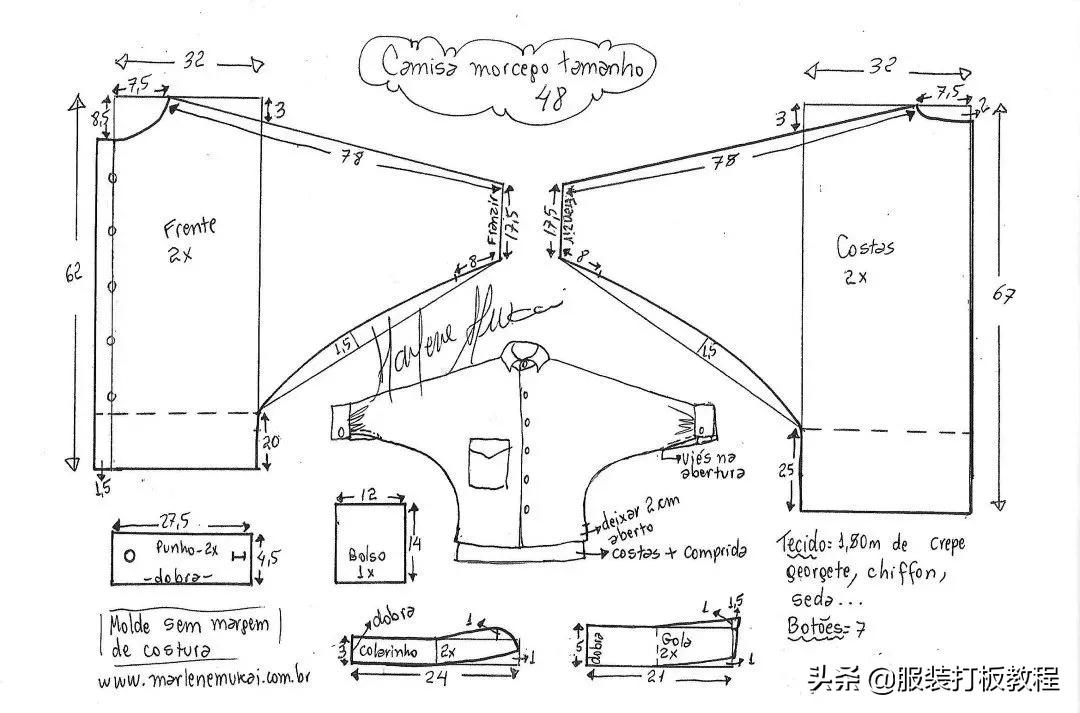 Camisa morcego tamanho
48
32
7,5
8,5
3
78
Franzir
17,5
8
Frente
2x
62
1,5
20
1,5
32
7,5
2
3
78
17,5
8
Costas
2x
67
1,5
25
Marlene Mukai
viés na
abertura
deixar 2 cm
aberto
costas + comprida
27,5
Punho-2x
-dobra-
4,5
12
Bolso
1x
14
Tecido: 1,80m de crepe
georgete, chiffon,
seda...
Botões= 7
Molde sem margem
de costura
www.marlenemukai.com.br
dobra
1
3
colarinho
2x
1
24
1
1,5
5
dobra
Gola
2x
1
21
头条 @服装打板教程